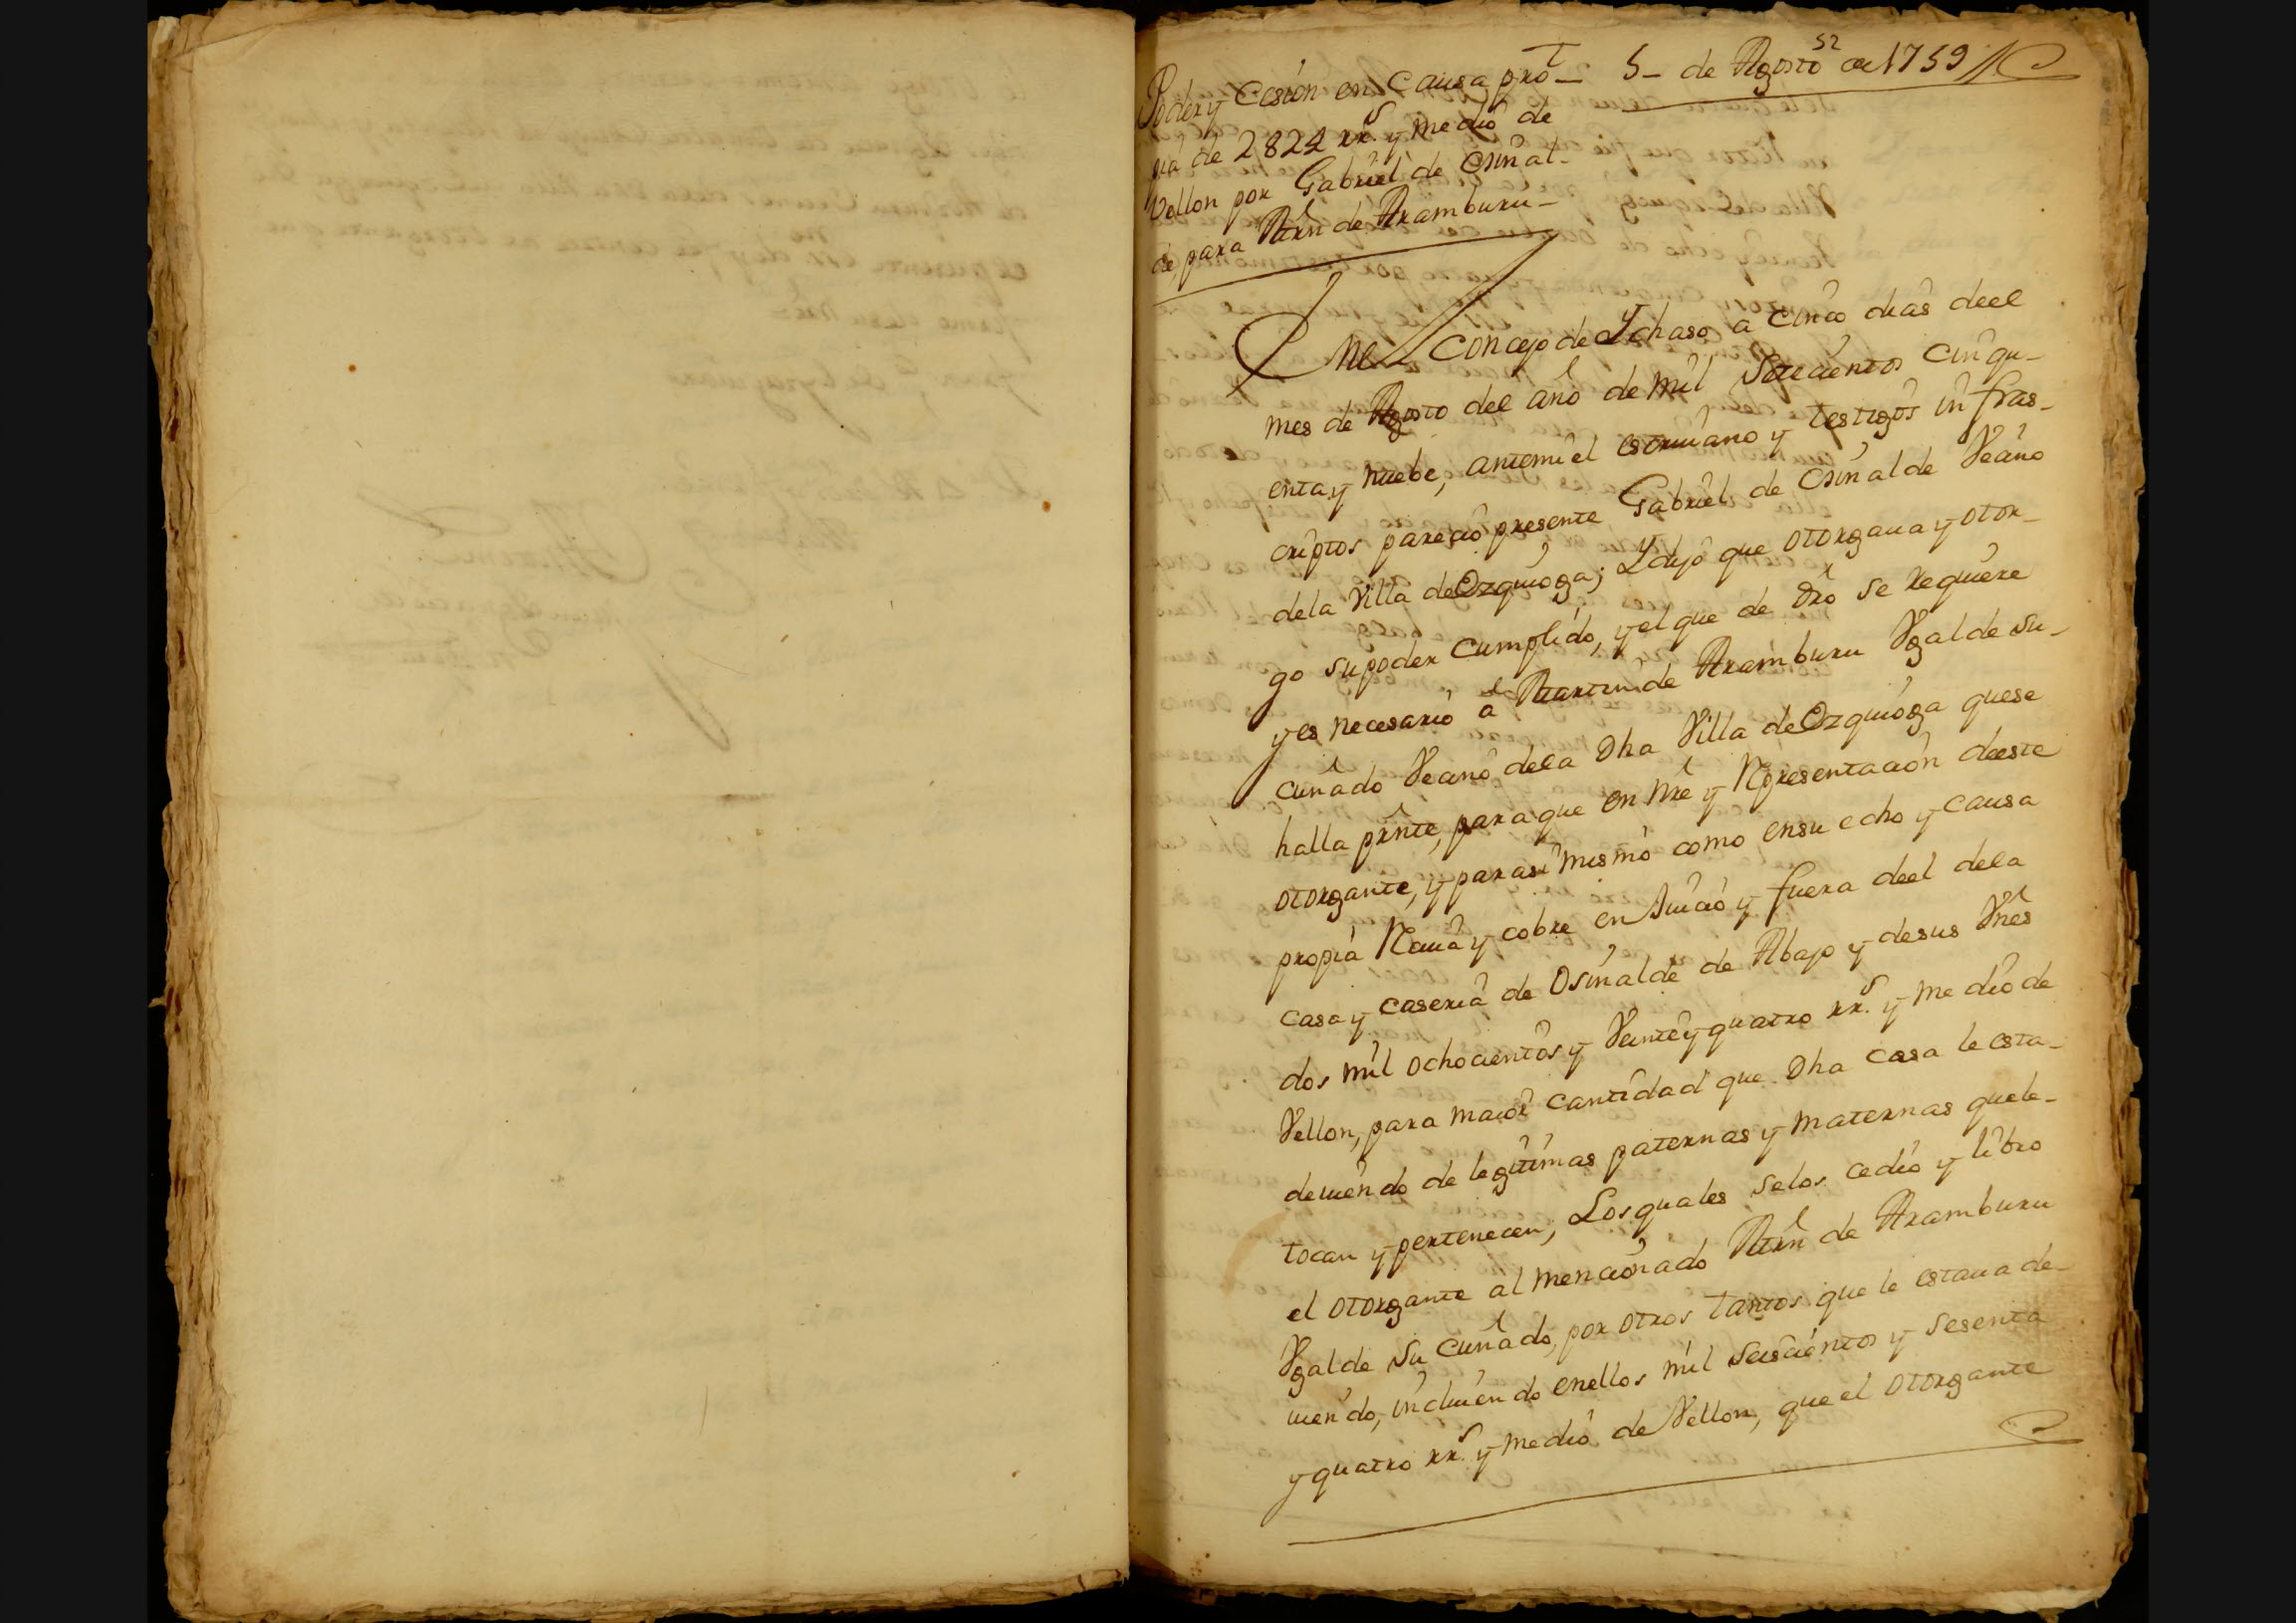 52
5- de Agosto de 1759
Poder y Cesion en Causa pro-
pia de 2824 rr.s y medio de
Vellon por Gabriel de Osinal-
de, para Mrn de Aramburu-
Enel Concejo de Ychaso a cinco dias deel
mes de Agosto del año de mil Setecientos cinqu-
enta y nuebe, antemi el escriuano y testigos infras-
criptos parecio presente Gabriel de Osinalde Vecino
dela Villa de Ozquioga; Y dijo que otorgaua y otor-
go su poder Cumplido, y el que de dro se requiere
y es necesario â Martin de Aramburu Vgalde su-
cuñado Vecino dela Dha Villa de Ozquioga que se
halla prnte, para que en nre y Representacion deeste
otorgante, y para si mismo como ensu echo y causa
propia Reciua y cobre en Juicio y fuera deel dela
casa y caseria de Osinalde de Abajo y desus Vnes
dos mil ochocientos y Veinte y quatro rr.s y medio de
Vellon, para maior cantidad que Dha casa le esta-
deuiendo de legitimas paternas y maternas que le-
tocan y pertenecen, Los quales se los cedio y libro
el otorgante al mencionado Mrn de Aramburu
Vgalde su cuñado, por otros tantos que le estaua de-
uiendo, incluiendo enellos mil seiscientos y sesenta
y quatro rr.s y medio de Vellon, que el otorgante